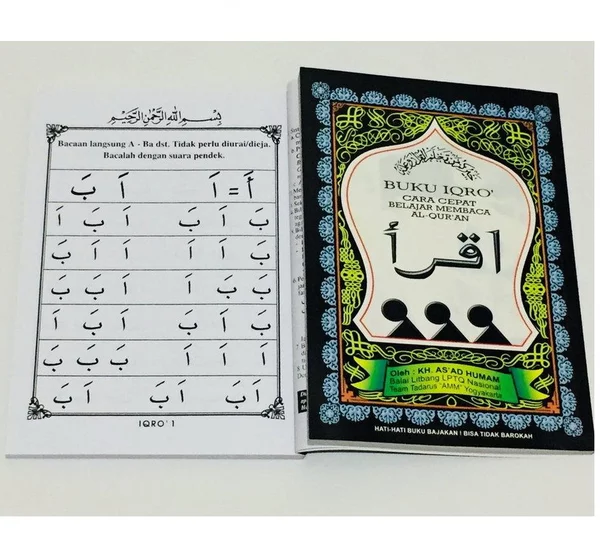 بِسْمِ اللهِ الرَّحْمٰنِ الرَّحِيْمِ
Bacaan langsung A - Ba dst. Tidak perlu diurai/dieja.
Bacalah dengan suara pendek.
أَ = اَ اَ بَ
بَ اَ بَ اَ بَ اَ
بَ اَ اَ اَ اَ بَ
بَ بَ اَ اَ بَ بَ
اَ اَ بَ اَ بَ اَ
اَ اَ اَ بَ بَ بَ
اَ بَ اَ بَ اَ بَ
IQRO' 1
BUKU IQRO'
CARA CEPAT
BELAJAR MEMBACA
AL-QUR'AN
اقرأ
Oleh : KH. AS'AD HUMAM
Balai Litbang LPTQ Nasional
Team Tadarus "AMM" Yogyakarta
HATI-HATI BUKU BAJAKAN ! BISA TIDAK BAROKAH